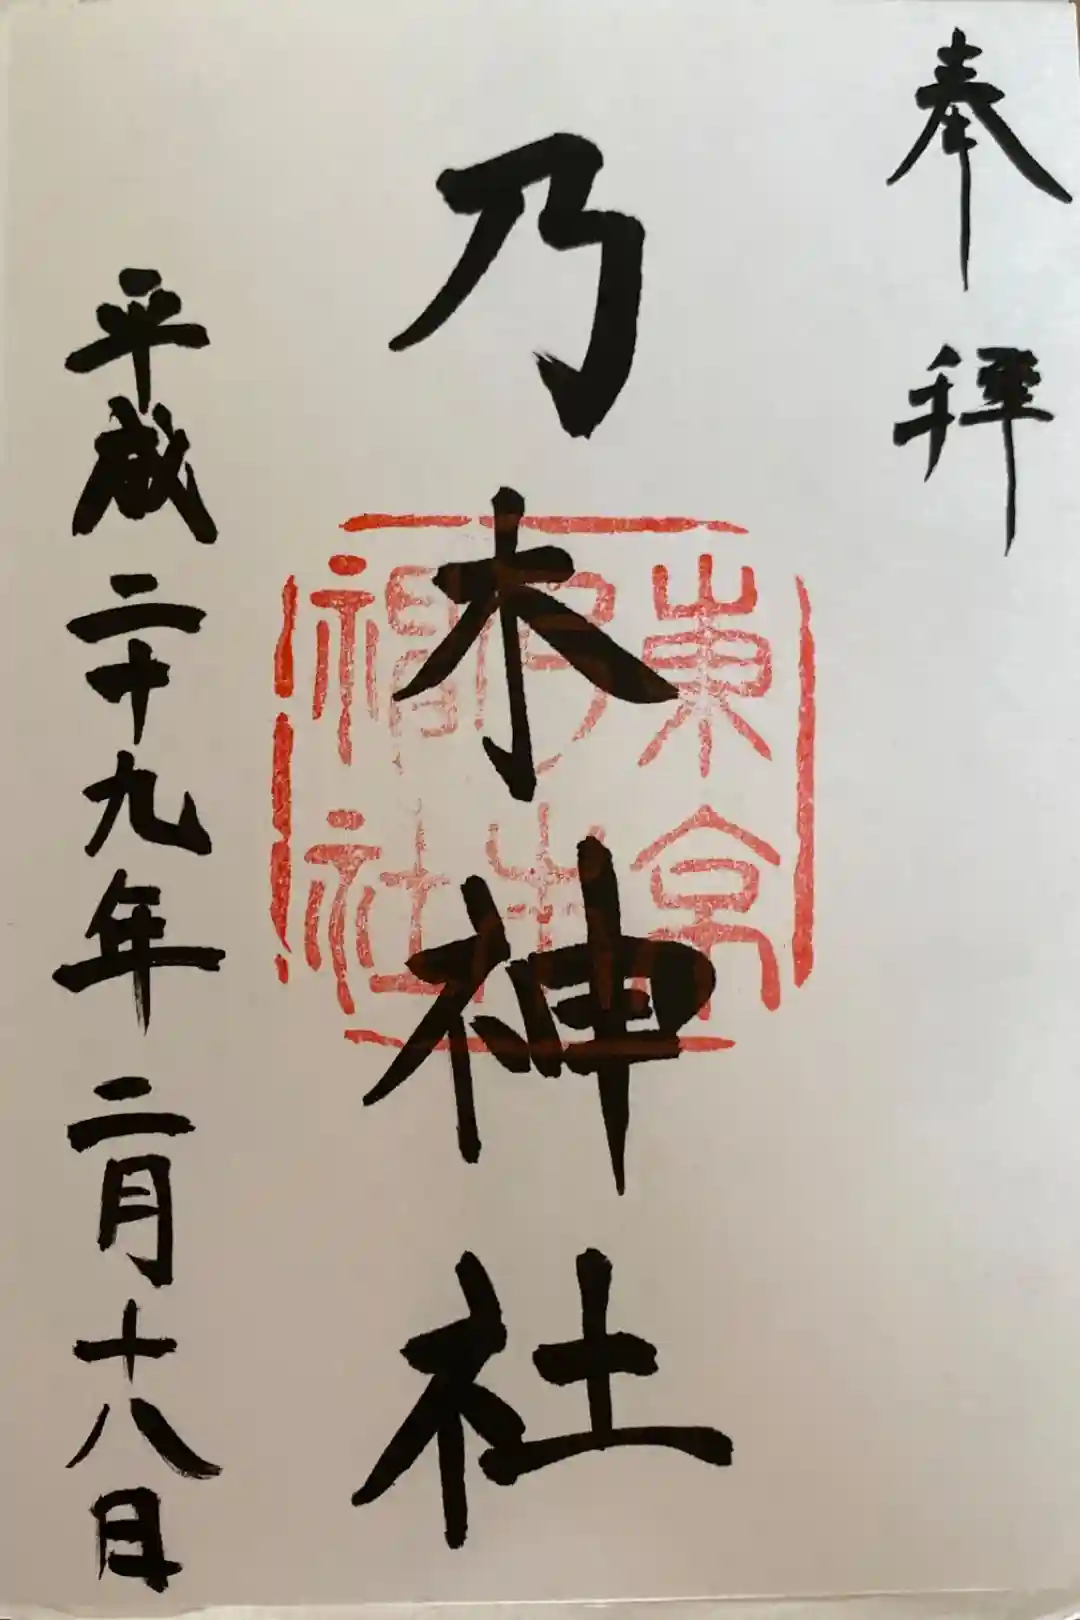 奉拝
乃木神社
東京
乃木
神社
平成二十九年二月十八日